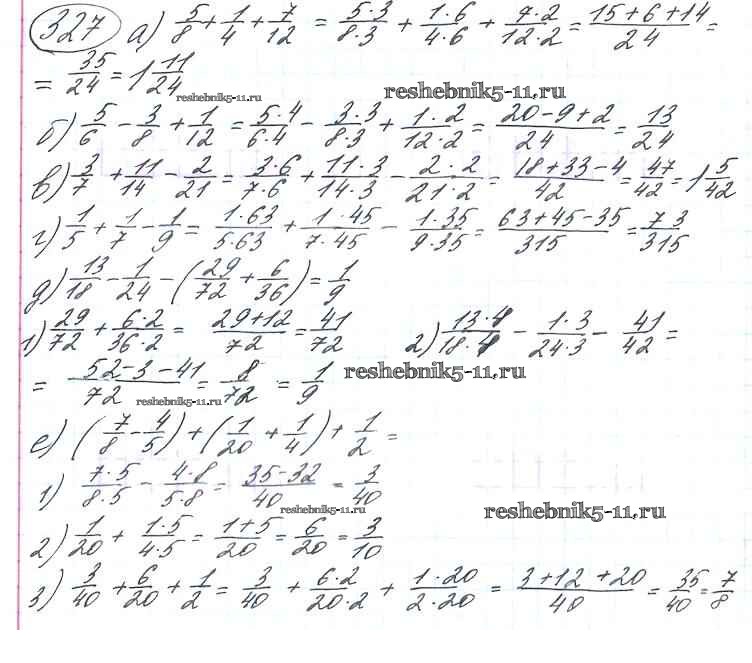 327 а) 5/8 + 1/4 + 7/12 = 5·3/8·3 + 1·6/4·6 + 7·2/12·2 = 15+6+14/24 =
= 35/24 = 1 11/24
reshebnik5-11.ru
reshebnik5-11.ru
б) 5/6 - 3/8 + 1/12 = 5·4/6·4 - 3·3/8·3 + 1·2/12·2 = 20-9+2/24 = 13/24
в) 3/7 + 11/14 - 2/21 = 3·6/7·6 + 11·3/14·3 - 2·2/21·2 = 18+33-4/42 = 47/42 = 1 5/42
г) 1/5 + 1/7 - 1/9 = 1·63/5·63 + 1·45/7·45 - 1·35/9·35 = 63+45-35/315 = 73/315
д) 13/18 - 1/24 - (29/72 + 6/36) = 1/9
1) 29/72 + 6·2/36·2 = 29+12/72 = 41/72 2) 13·4/18·4 - 1·3/24·3 - 41/42 =
= 52-3-41/72 = 8/72 = 1/9
reshebnik5-11.ru
reshebnik5-11.ru
е) (7/8 - 4/5) + (1/20 + 1/4) + 1/2 =
1) 7·5/8·5 - 4·8/5·8 = 35-32/40 = 3/40
reshebnik5-11.ru
reshebnik5-11.ru
2) 1/20 + 1·5/4·5 = 1+5/20 = 6/20 = 3/10
3) 3/40 + 6/20 + 1/2 = 3/40 + 6·2/20·2 + 1·20/2·20 = 3+12+20/40 = 35/40 = 7/8